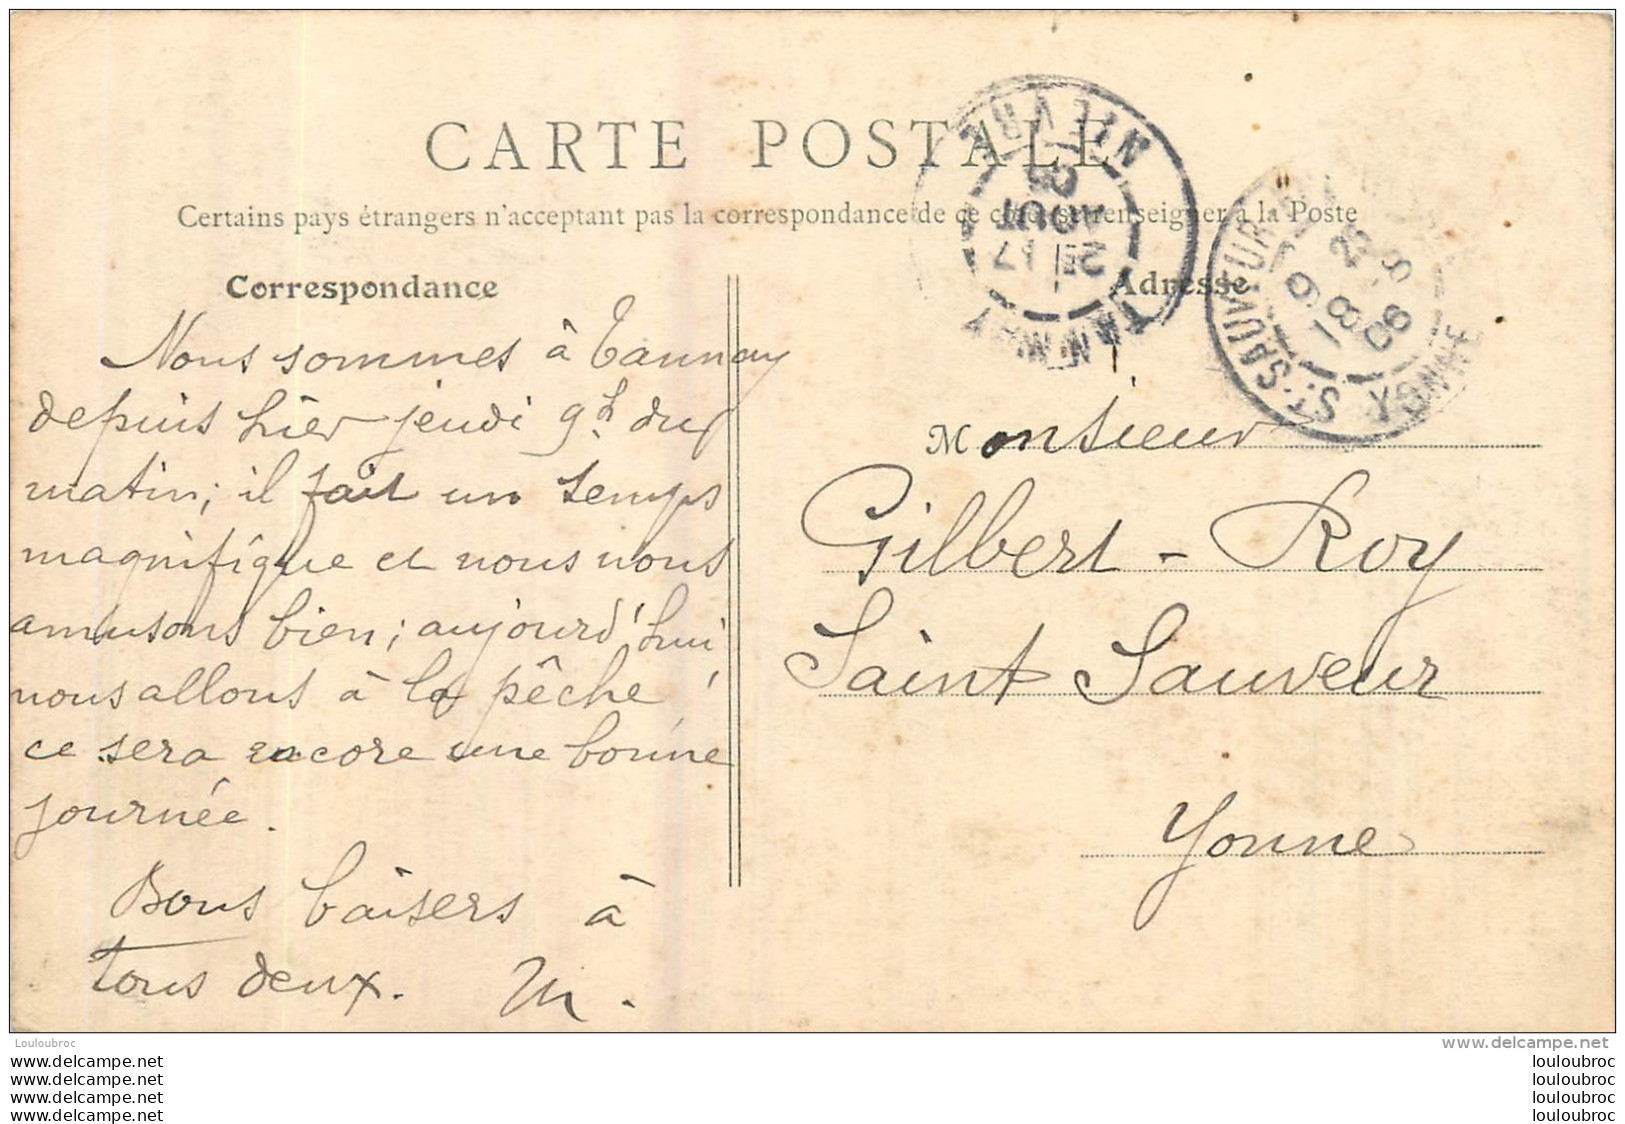 CARTE POSTALE
Certains pays étrangers n'acceptant pas la correspondance de ce côté, se renseigner à la Poste
Correspondance
Nous sommes à Tannay
depuis hier jeudi 9h. du
matin; il fait un temps
magnifique et nous nous
amusons bien; aujourd'hui
nous allons à la pêche!
ce sera encore une bonne
journée.
Bons baisers à
tous deux. M.
Adresse
Monsieur
Gilbert-Roy
Saint Sauveur
Yonne
TANNAY
NIEVRE
AOUT
06
ST-SAUVEUR
18 8
06
YONNE
Louloubroc
www.delcampe.net
www.delcampe.net
www.delcampe.net
www.delcampe.net
www.delcampe.net
louloubroc
louloubroc
louloubroc
louloubroc